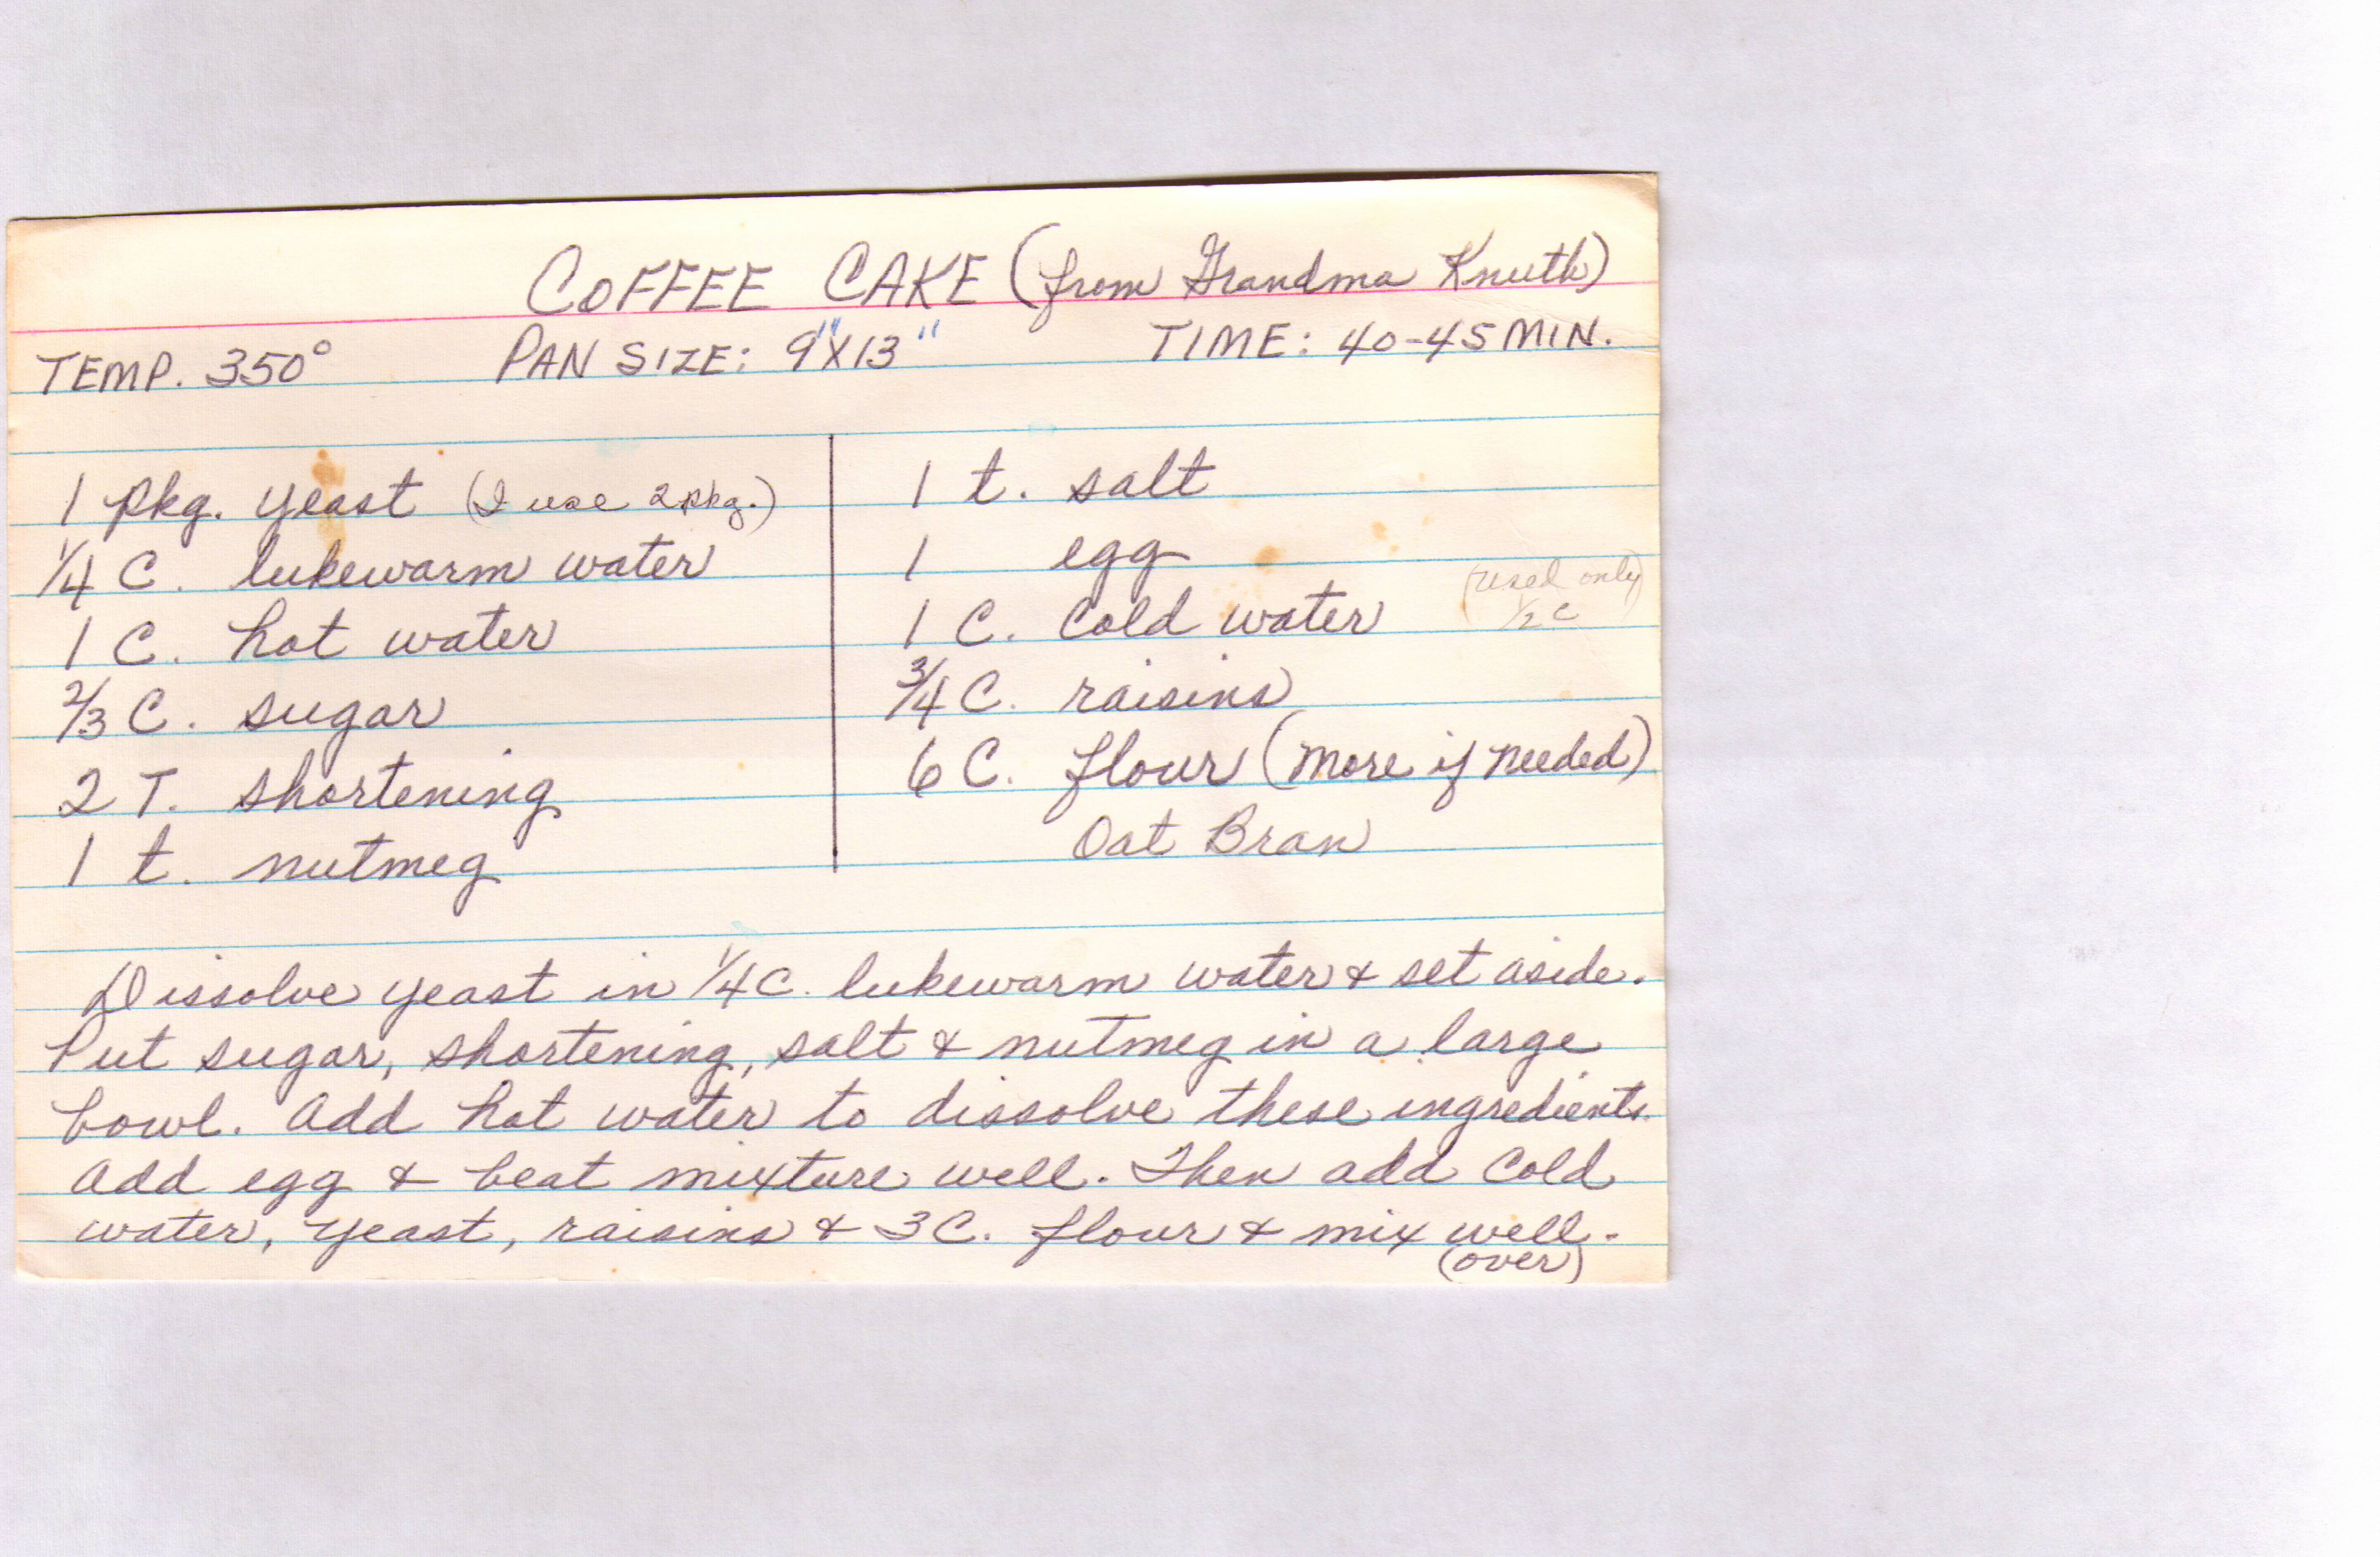 COFFEE CAKE (from Grandma Knuth)
TEMP. 350° PAN SIZE: 9"X13" TIME: 40-45 MIN.
1 pkg. yeast (I use 2 pkg.)
1/4 C. lukewarm water
1 C. hot water
2/3 C. sugar
2 T. shortening
1 t. nutmeg
1 t. salt
1 egg
1 C. cold water (used only 1/2 c)
3/4 C. raisins
6 C. flour (more if needed)
Oat Bran
Dissolve yeast in 1/4 C. lukewarm water & set aside.
Put sugar, shortening, salt & nutmeg in a large
bowl. Add hot water to dissolve these ingredients.
Add egg & beat mixture well. Then add cold
water, yeast, raisins & 3 C. flour & mix well.
(over)